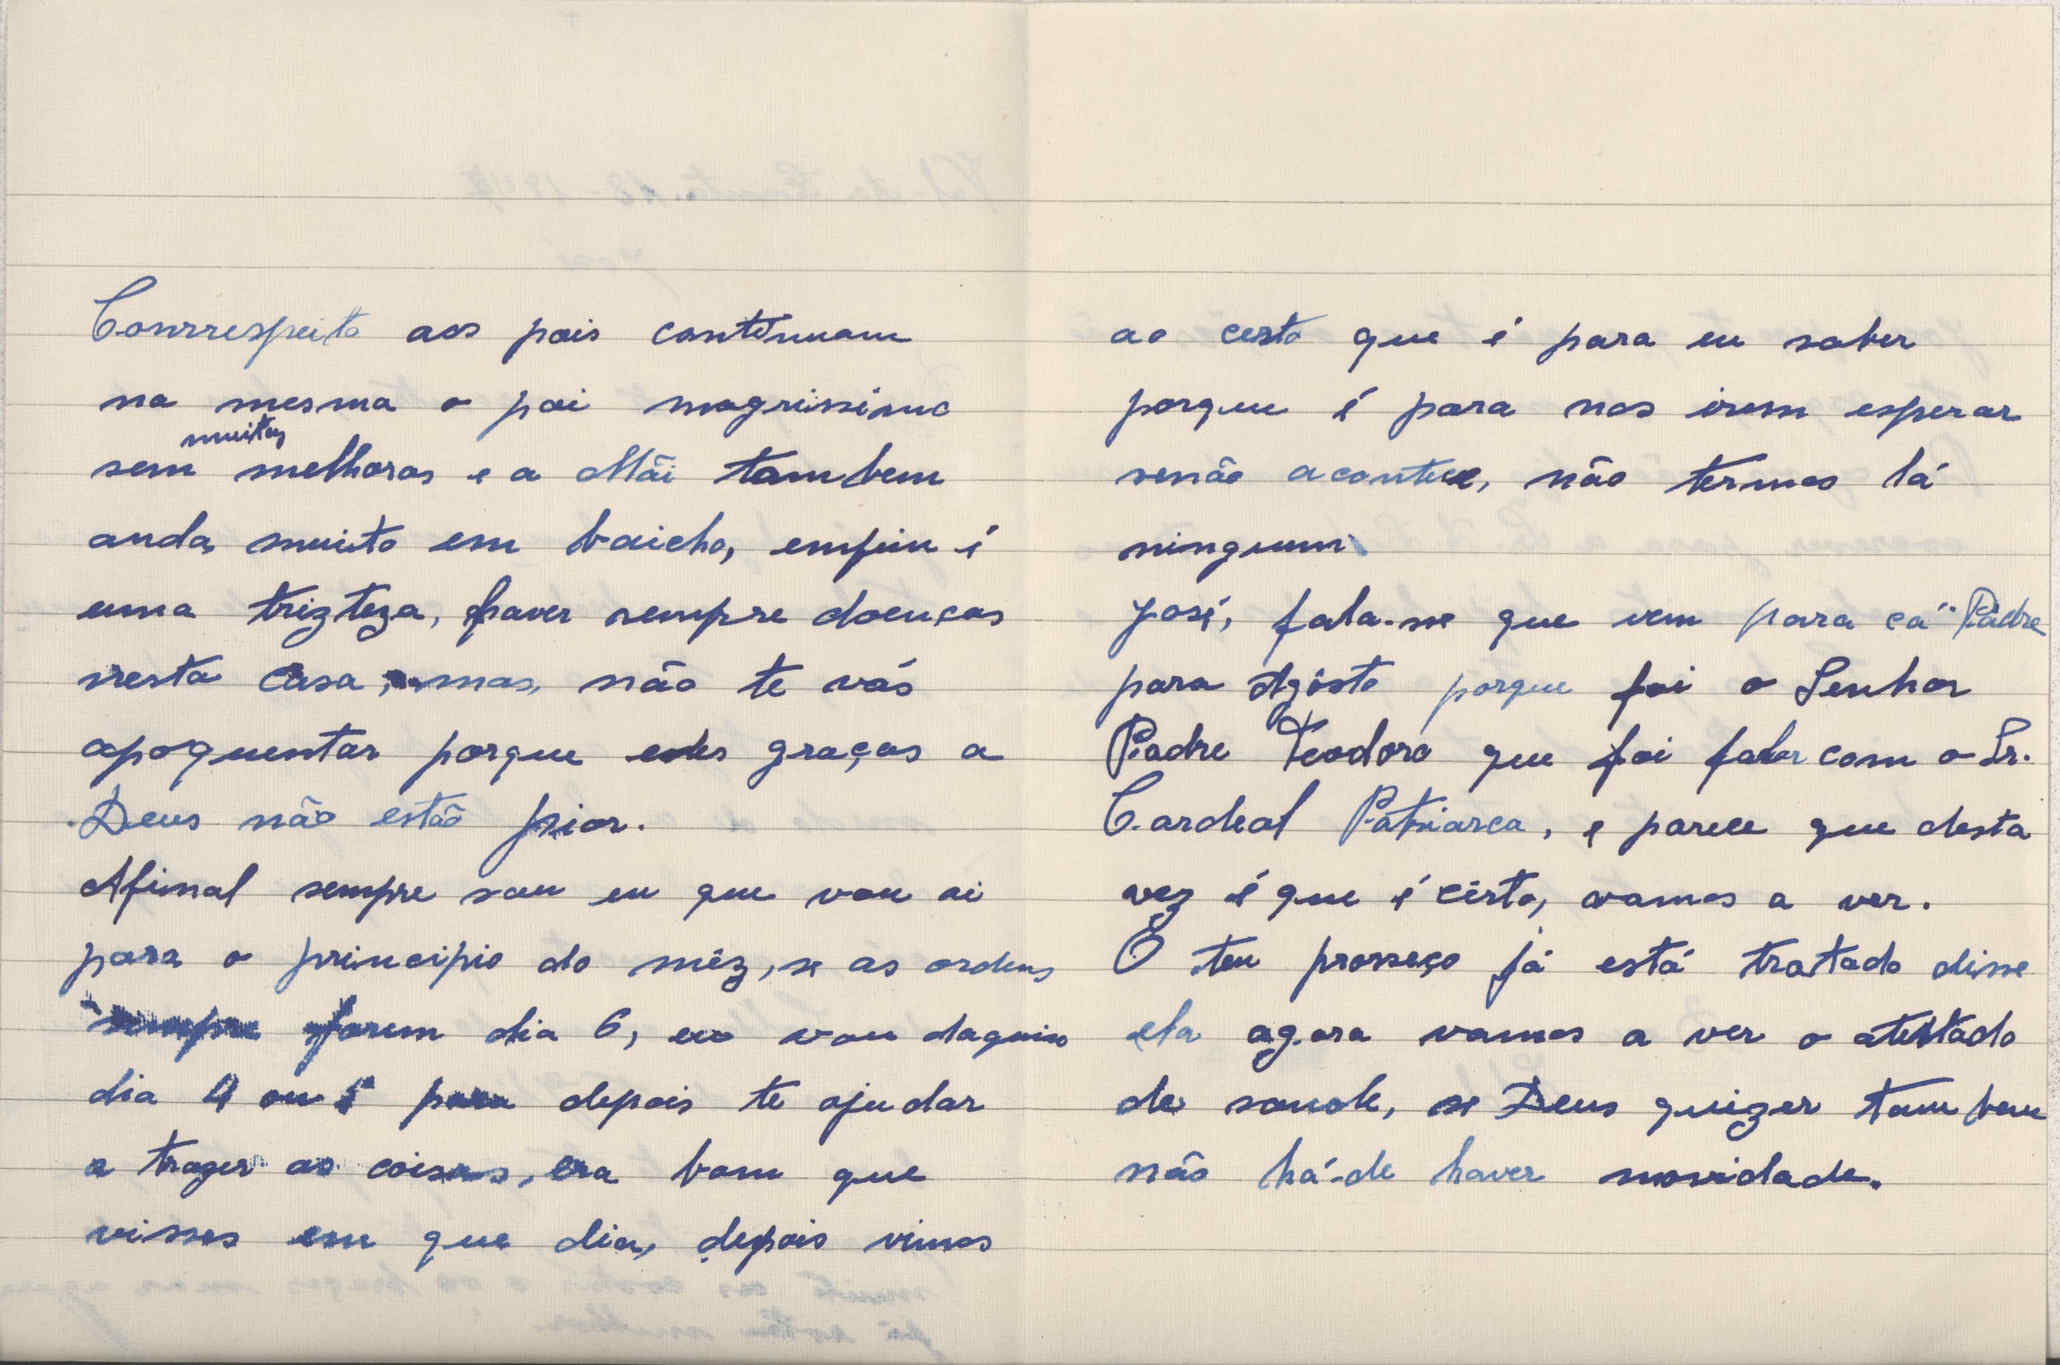 Conrrespeito aos pais continuam
na mesma o pai magrissimo
muitas
sem melhoras e a Mãi tambem
anda muito em baicho, emfim é
uma trizteza, haver sempre doenças
nesta casa, mas, não te vás
apoquentar porque eles graças a
Deus não estão pior.
Afinal sempre sou eu que vou ai
para o principio do mêz, se as ordens
sempre forem dia 6, eu vou daquino
dia 4 ou 5 para depois te ajudar
a trazer as coisas, era bom que
visses em que dia, depois vimos
ao certo que é para eu saber
porque é para nos irem esperar
senão acontece, não termos lá
ninguem
José, fala-se que vem para cá Padre
para Agôsto porque foi o Senhor
Padre Teodoro que foi falar com o Sr.
Cardeal Patriarca, e parece que desta
vez é que é cêrto, vamos a ver.
O teu prosseço já está tratado disse
ela agora vamos a ver o atestado
de saude, se Deus quizer tambem
não há-de haver novidade.